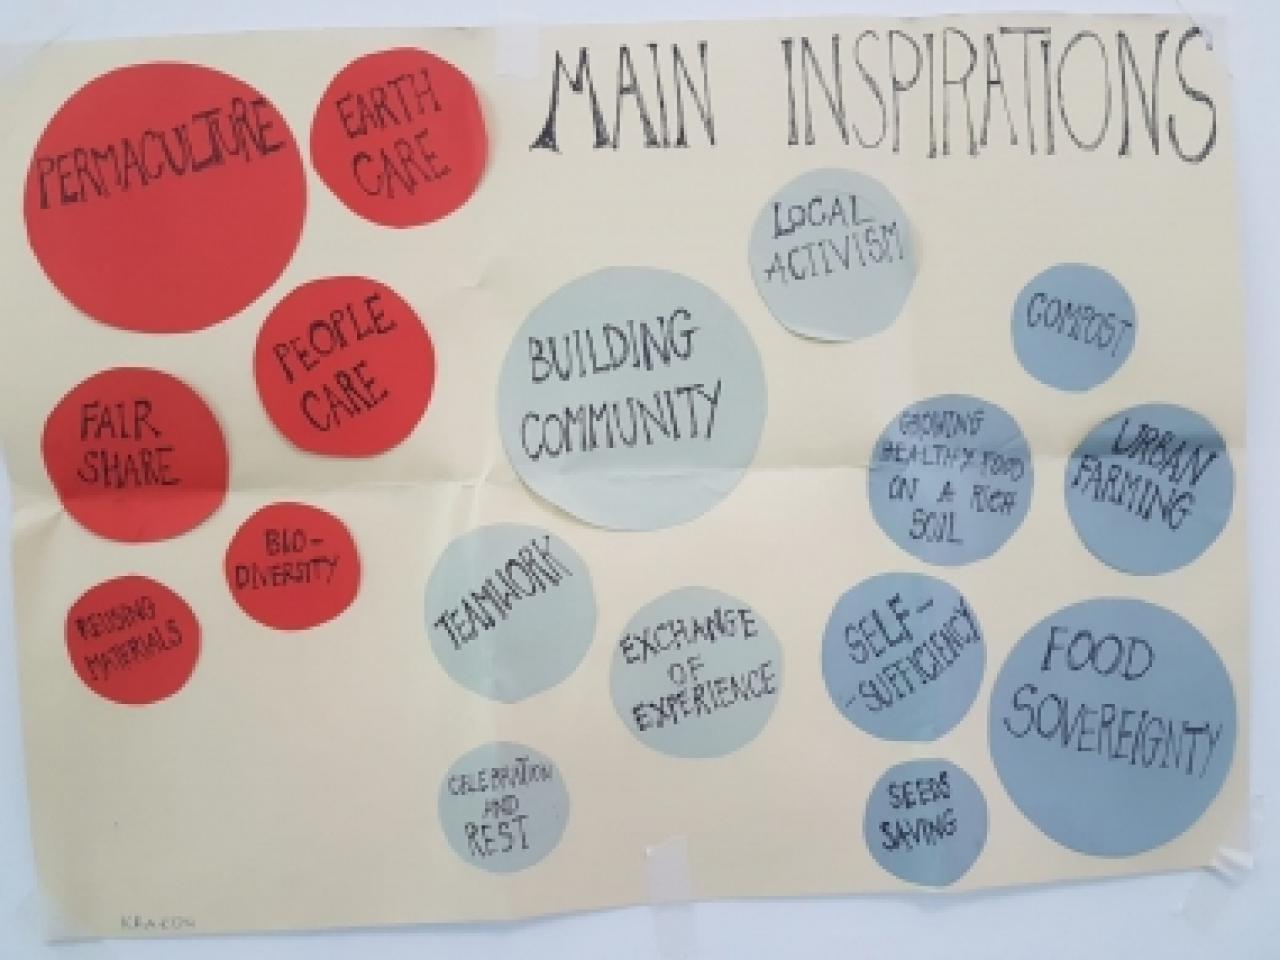 MAIN INSPIRATIONS
PERMACULTURE
EARTH
CARE
PEOPLE
CARE
FAIR
SHARE
BIO-
DIVERSITY
REUSING
MATERIALS
LOCAL
ACTIVISM
BUILDING
COMMUNITY
TEAMWORK
EXCHANGE
OF
EXPERIENCE
CELEBRATION
AND
REST
COMPOST
GROWING
HEALTHY FOOD
ON A RICH
SOIL
URBAN
FARMING
SELF-
-SUFFICIENCY
FOOD
SOVEREIGNTY
SEEDS
SAVING